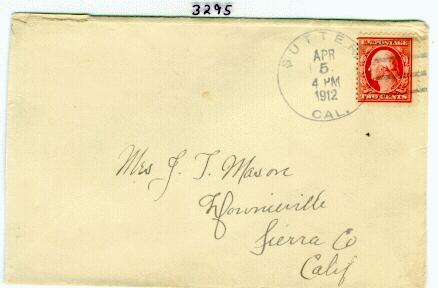 3295
SUTTER
APR
5
4 PM
1912
CAL.
U.S. POSTAGE
TWO CENTS
Mrs J. T. Mason
Downieville
Sierra Co
Calif